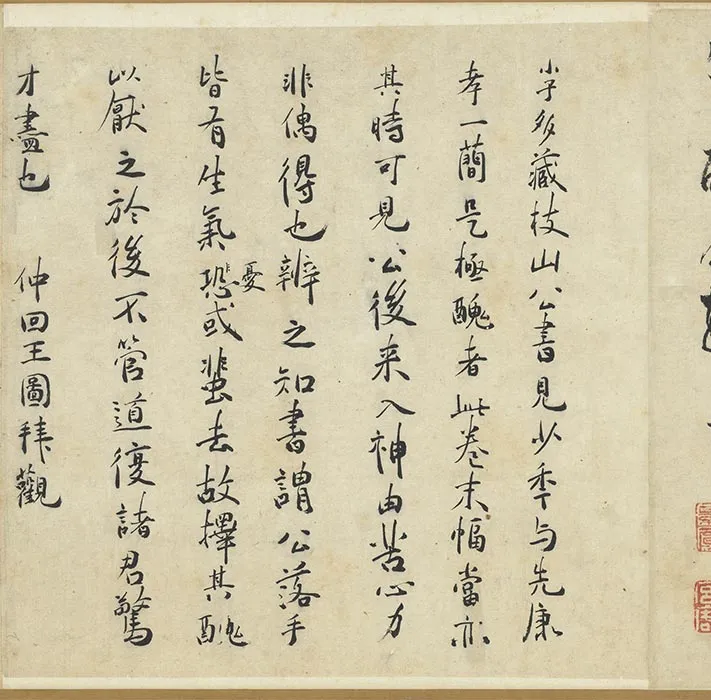 小子多藏枝山公書見少秊与先康
孝一蕳是極醜者此卷末幅當亦
其時可見公後来入神由苦心力
非偶得也辨之知書謂公落手
皆有生氣恐非憂或蜚去故擇其醜
以厭之於後不管道復諸君驚
才盡也 仲回王圖拜觀